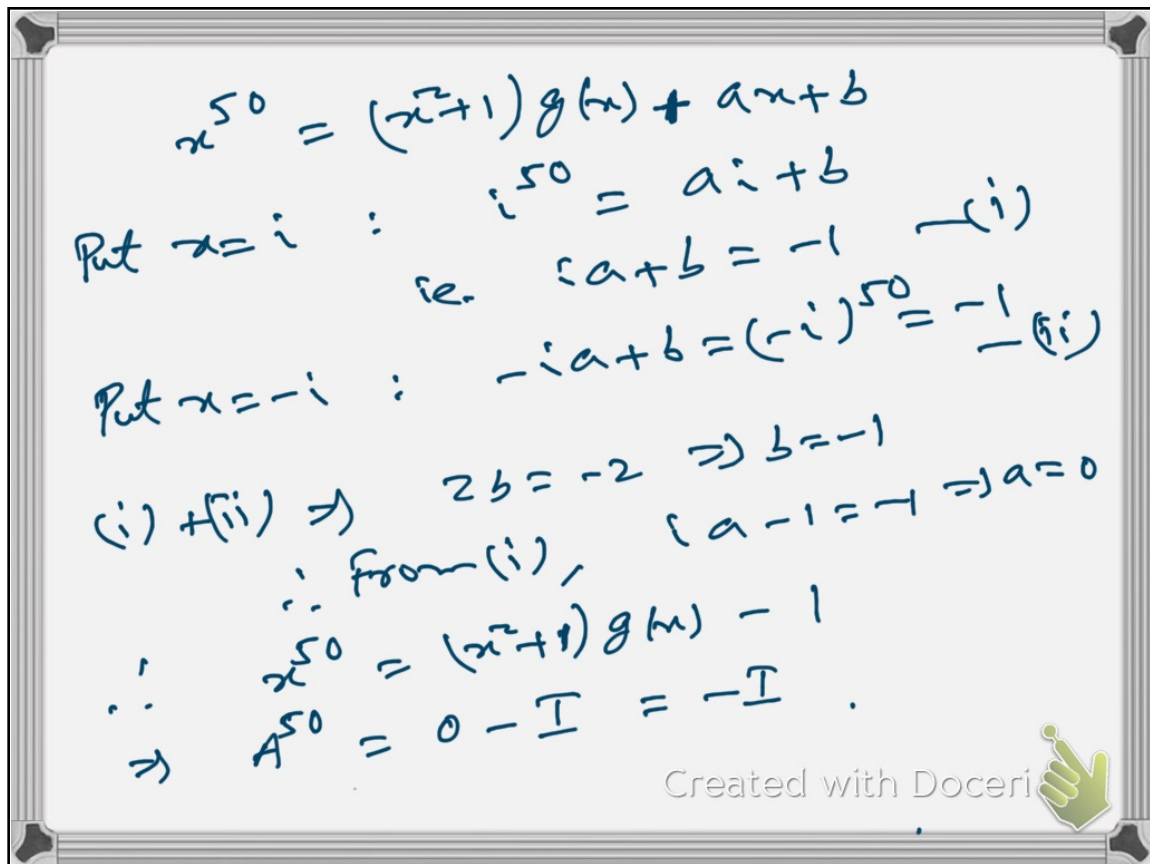 x^50 = (x²+1) g(x) + ax+b
Put x=i : i^50 = ai+b
ie. ia+b = -1 —(i)
Put x=-i : -ia+b = (-i)^50 = -1 —(ii)
(i)+(ii) ⇒ 2b = -2 ⇒ b=-1
∴ From (i), ia-1=-1 ⇒ a=0
∴ x^50 = (x²+1) g(x) - 1
⇒ A^50 = 0 - I = -I .
Created with Doceri